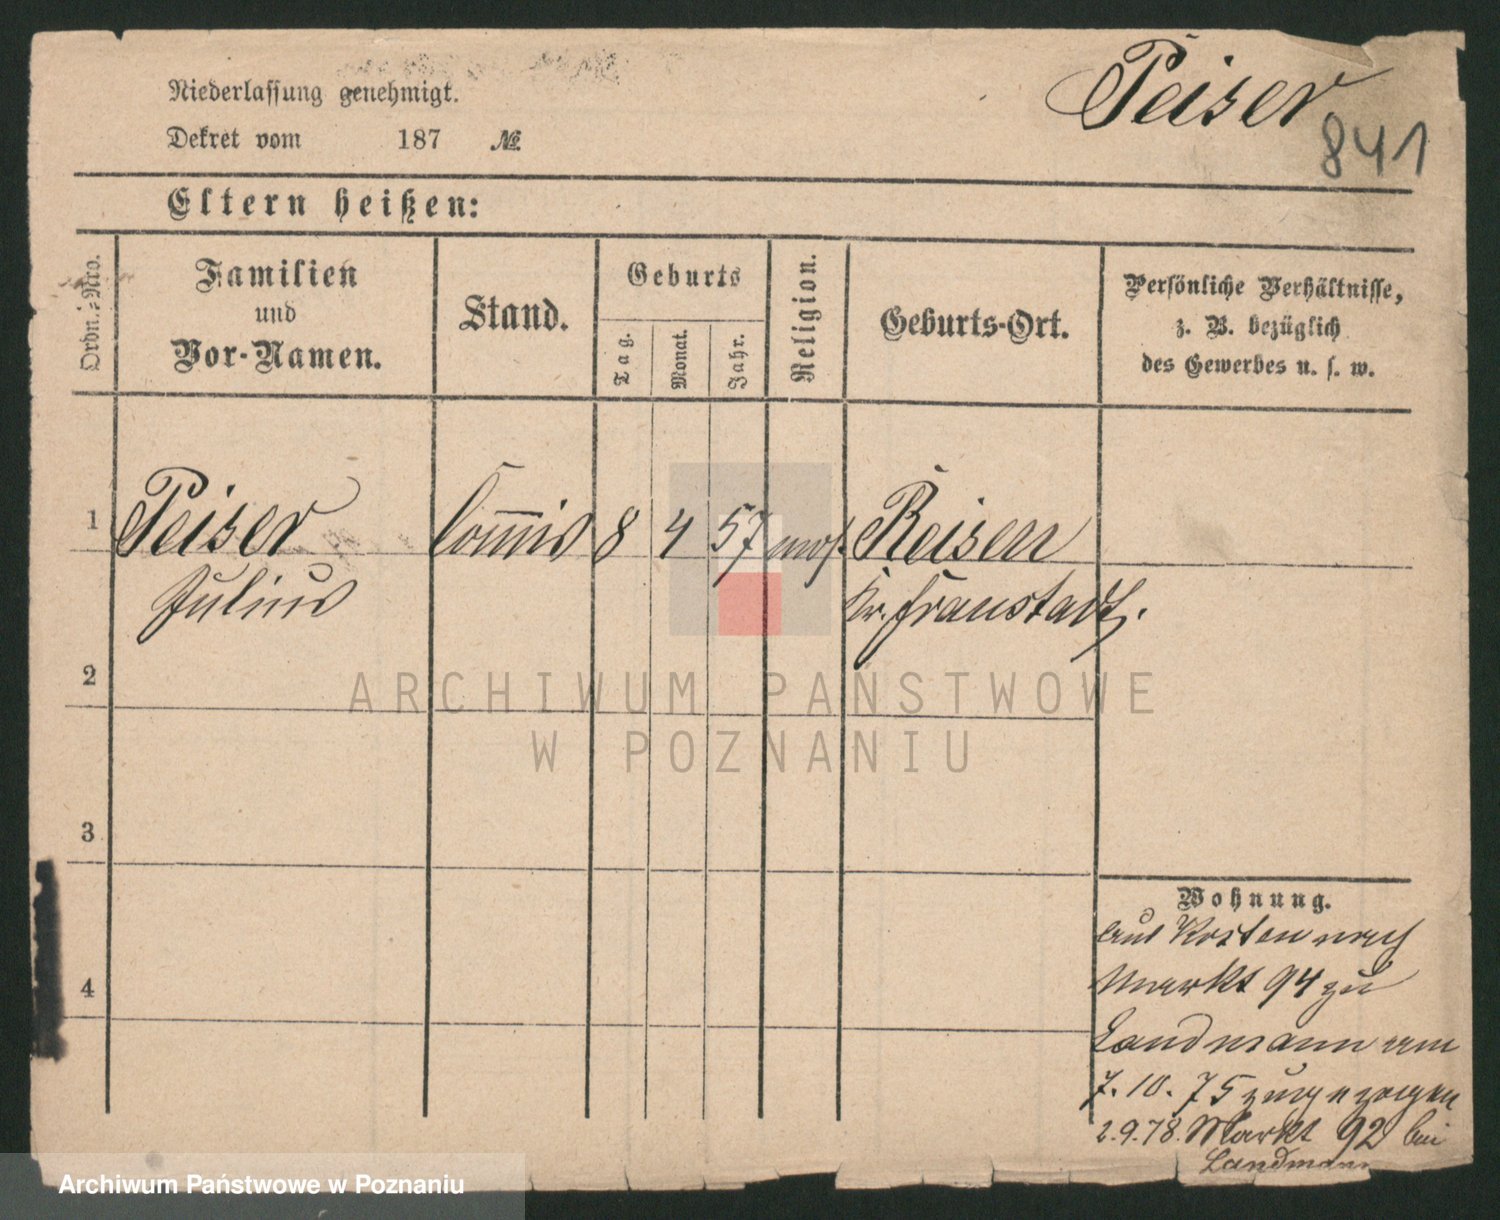 Peiser
841
Niederlassung genehmigt.
Dekret vom 187 №
Eltern heißen:
Ordn.-Nro.
Familien
und
Vor-Namen.
Stand.
Geburts
Tag.
Monat.
Jahr.
Religion.
Geburts-Ort.
Persönliche Verhältnisse,
z. B. bezüglich
des Gewerbes u. s. w.
1 Peiser Commis 8 4 57 mos. Reisen
Julius Kr. Fraustadt.
2
3
4
Wohnung.
aus Kosten nach
Markt 94 zu
Landmann am
7.10.75 zugezogen
2.9.78. Markt 92 bei
Landmann
ARCHIWUM PAŃSTWOWE
W POZNANIU
Archiwum Państwowe w Poznaniu